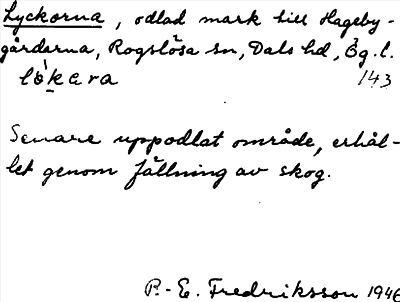 Lyckorna, odlad mark till Hageby-
gårdarna, Rogslösa sn, Dals hd, Ög. l.
lo̍kera 143
Senare uppodlat område, erhål-
let genom fällning av skog.
P.-E. Fredriksson 1946